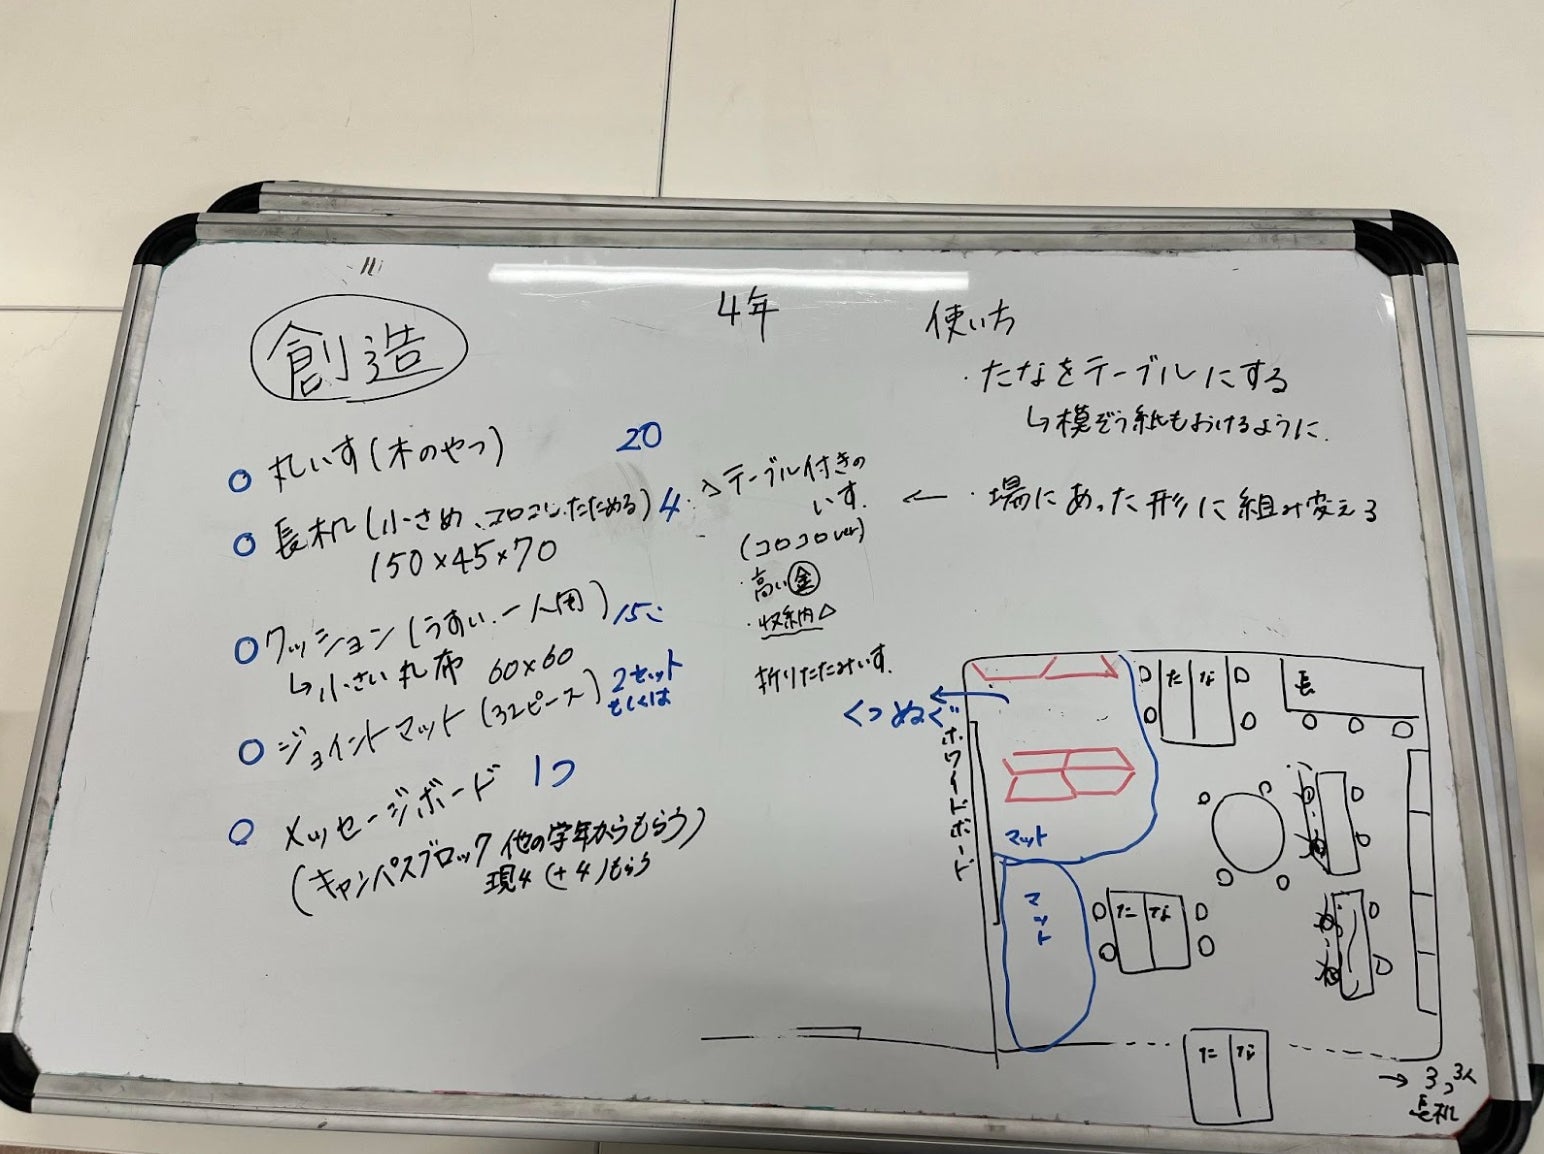 創造
4年
丸いす(木のやつ) 20
長机(小さめ、コロコロ、たためる) 4
150×45×70
クッション(うすい、一人用) 15こ
↳小さい丸布 60×60
ジョイントマット(32ピース) 2セット
もしくは
メッセージボード 1つ
(キャンパスブロック 他の学年からもらう)
現4 (+4)もらう
テーブル付きの
いす。
(コロコロver)
・高い金
・収納△
折りたたみいす。
使い方
・たなをテーブルにする
↳模ぞう紙もおけるように。
← ・場にあった形に組み変える
くつぬぐ
ホワイトボード
マット
マット
たな
長
たな
たな
→ 3つ 3人
長机